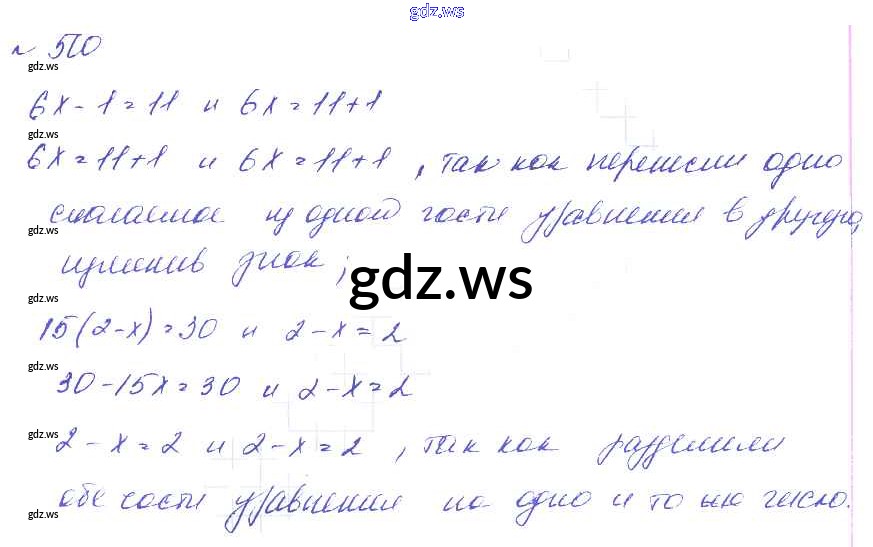 gdz.ws
№ 510
gdz.ws
6x - 1 = 11 и 6x = 11+1
gdz.ws
6x = 11+1 и 6x = 11+1, так как перенесли одно
слагаемое из одной части уравнения в другую,
gdz.ws
изменив знак;
gdz.ws
gdz.ws
15(2-x) = 30 и 2-x = 2
gdz.ws
30-15x = 30 и 2-x = 2
gdz.ws
2-x = 2 и 2-x = 2, так как разделили
gdz.ws
обе части уравнения на одно и то же число.
gdz.ws